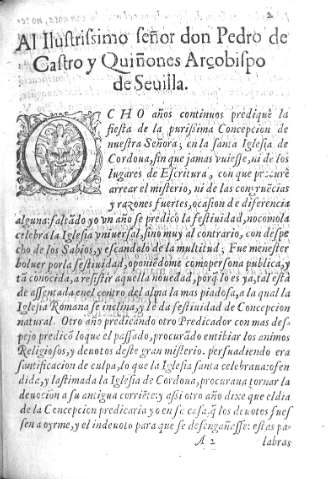 2
Al Ilustrissimo señor don Pedro de
Castro y Quiñones Arçobispo
de Seuilla.
OCHO años continuos predique la
fiesta de la purissima Concepcion de
nuestra Señora; en la santa Iglesia de
Cordoua, sin que jamas vuiesse, ni de los
lugares de Escritura, con que procurè
arrear el misterio, ni de las congruēcias
y razones fuertes, ocasion de diferencia
alguna: faltādo yo vn año se predicò la festiuidad, no como la
celebra la Iglesia vniuersal, sino muy al contrario, con despe
cho de los Sabios, y escandalo de la multitud. Fue menester
boluer por la festiuidad, oponiēdome como persona publica, y
tā conocida, a resistir aquella nouedad, porq̃ lo es ya, tal està
de assentada en el centro del alma la mas piadosa, a la qual la
Iglesia Romana se inclina, y le da festiuidad de Concepcion
natural. Otro año predicando otro Predicador con mas des
pejo predicò lo que el passado, procurādo entibiar los animos
Religiosos, y deuotos deste gran misterio. persuadiendo era
santificacion de culpa, lo que la Iglesia santa celebraua: ofen
dida, y lastimada la Iglesia de Cordoua, procuraua tornar la
deuocion a su antigua corriēte: y assi otro año dixe que el dia
de la Concepcion predicaria yo en su casa, q̃ los deuotos fues
sen a oyrme, y el indeuoto para que se desengañesse: estas pa-
A 2 labras